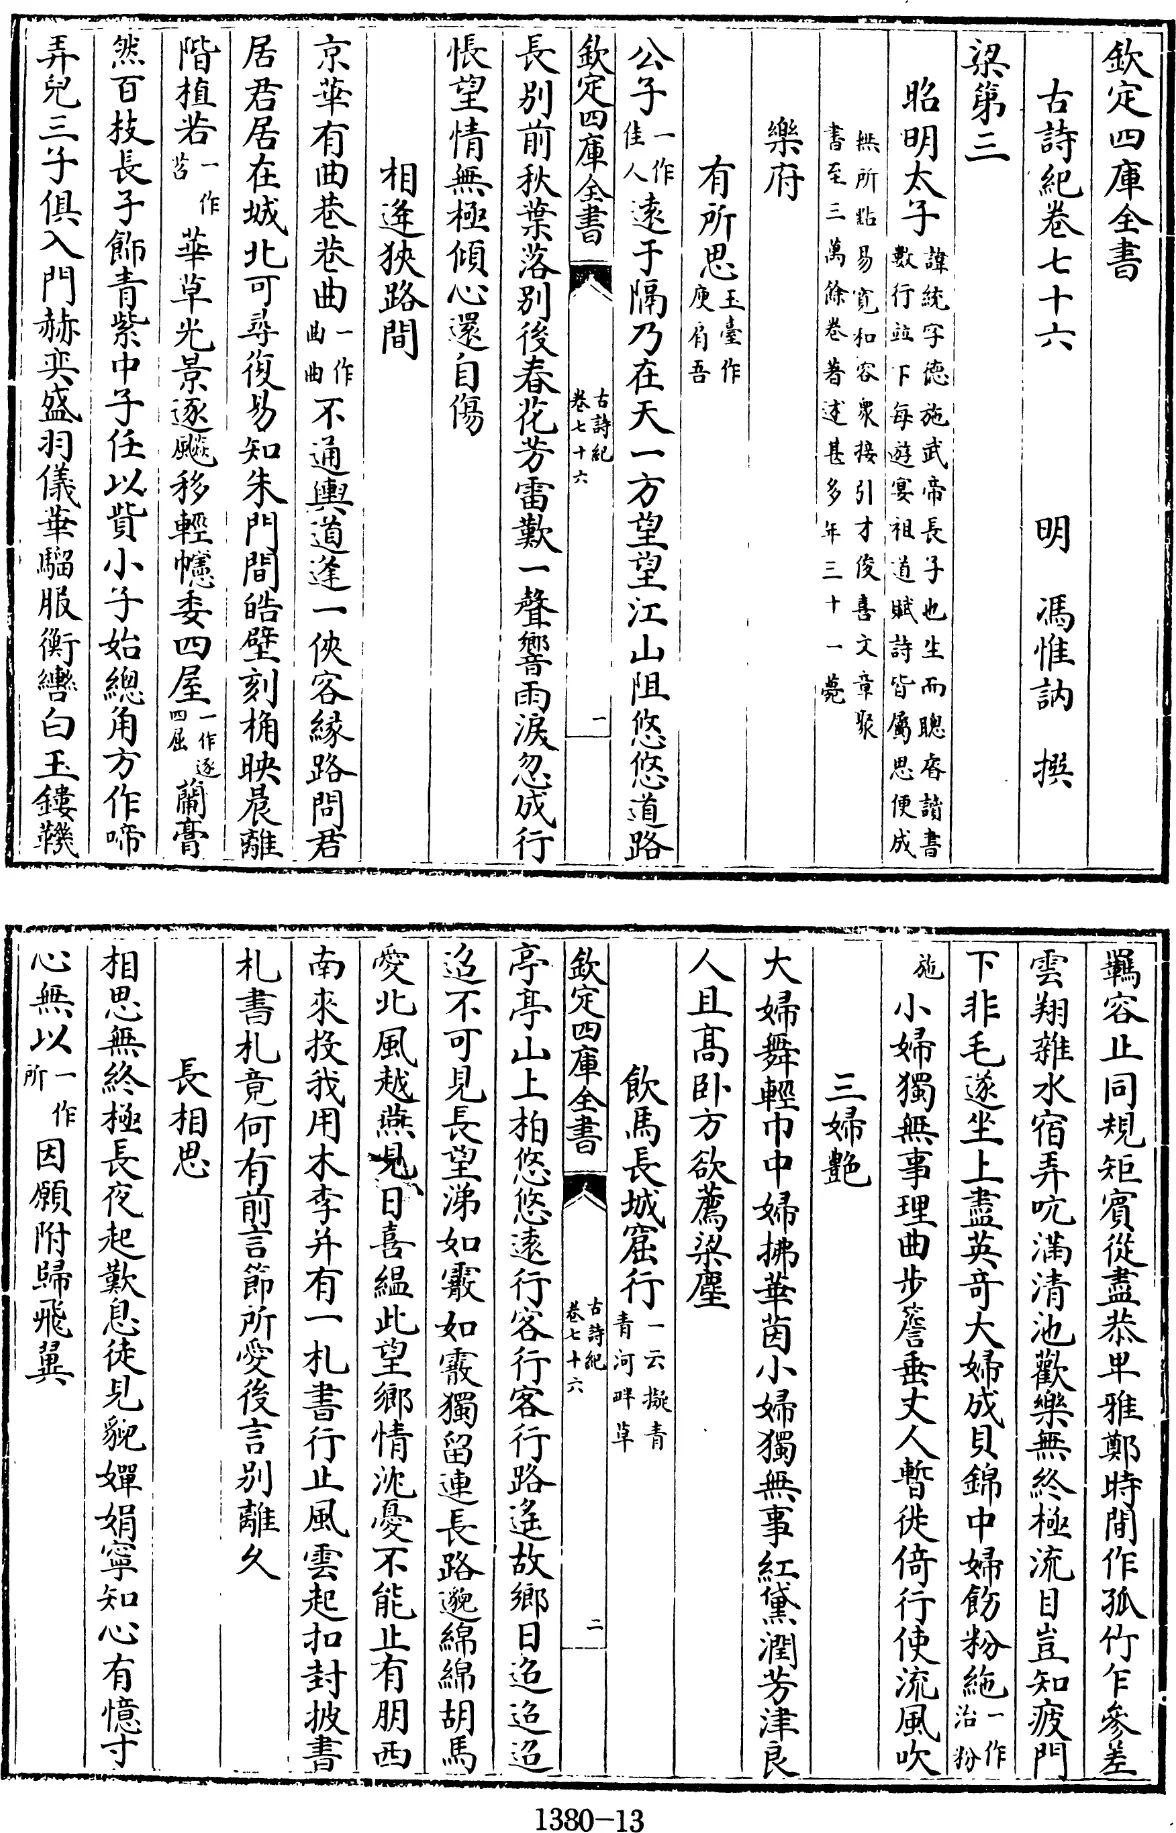 欽定四庫全書
古詩紀卷七十六　明　馮惟訥　撰
梁第三
昭明太子諱統字德施武帝長子也生而聰睿讀書數行並下每遊宴祖道賦詩皆屬思便成
無所點易寬和容衆接引才俊喜文章聚書至三萬餘卷著述甚多年三十一薨
樂府
有所思玉臺作庾肩吾
公子一作佳人遠于隔乃在天一方望望江山阻悠悠道路
欽定四庫全書　古詩紀卷七十六　一
長別前秋葉落別後春花芳雷歎一聲響雨淚忽成行
悵望情無極傾心還自傷
相逢狹路間
京華有曲巷巷曲一作曲曲不通輿道逢一俠客緣路問君
居君居在城北可尋復易知朱門間皓壁刻桷映晨離
階植若一作苔華草光景逐飈移輕幰委四屋一作逐四屈蘭膏
然百枝長子飾青紫中子任以貲小子始總角方作啼
弄兒三子俱入門赫奕盛羽儀華騮服衡轡白玉鏤鞿
羈容止同規矩賓從盡恭卑雅鄭時間作孤竹乍參差
雲翔雜水宿弄吭滿清池歡樂無終極流目豈知疲門
下非毛遂坐上盡英奇大婦成貝錦中婦飭粉絁一作治粉
施小婦獨無事理曲步簷垂丈人暫徙倚行使流風吹
三婦艶
大婦舞輕巾中婦拂華茵小婦獨無事紅黛潤芳津良
人且高臥方欲薦梁塵
飲馬長城窟行一云擬青青河畔草
欽定四庫全書　古詩紀卷七十六　二
亭亭山上柏悠悠遠行客行客行路遙故鄉日迢迢迢
迢不可見長望涕如霰如霰獨留連長路邈綿綿胡馬
愛北風越燕見日喜緼此望鄉情沈憂不能止有朋西
南來投我用木李并有一札書行止風雲起扣封披書
札書札竟何有前言節所愛後言別離久
長相思
相思無終極長夜起歎息徒見貌嬋娟寧知心有憶寸
心無以一作所因願附歸飛翼
1380-13